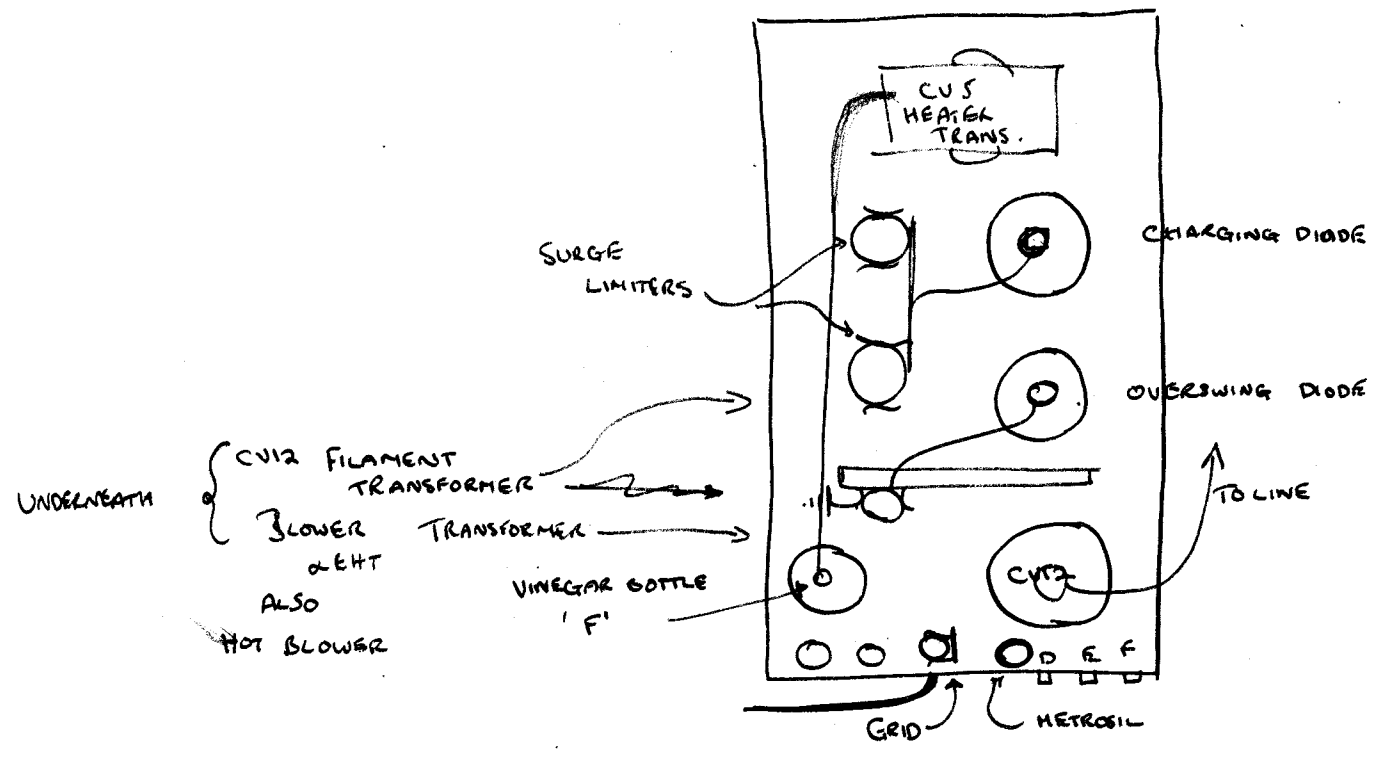 CV5
HEATER
TRANS.
CHARGING DIODE
SURGE
LIMITERS
OVERSWING DIODE
UNDERNEATH
CV12 FILAMENT
TRANSFORMER
BLOWER TRANSFORMER
& EHT
ALSO
HOT BLOWER
TO LINE
VINEGAR BOTTLE
'F'
D E F
GRID
METROSIL